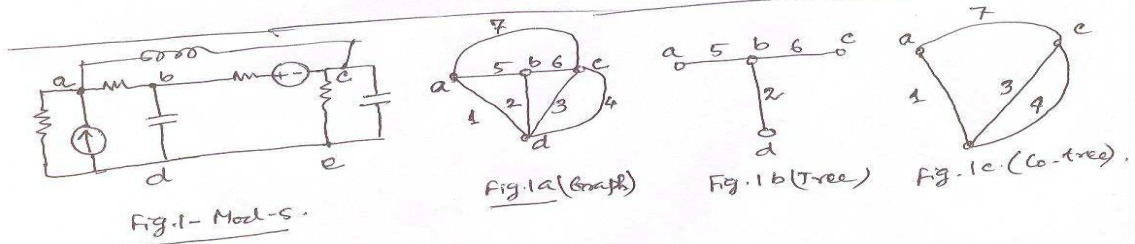 a b + - c
d e
Fig.1- Mod-5.
7
a 5 b 6 c
1 2 3 4
d
Fig.1a (Graph)
a 5 b 6 c
2
d
Fig.1b (Tree)
7
a c
1 3 4
Fig.1c.(Co-tree).